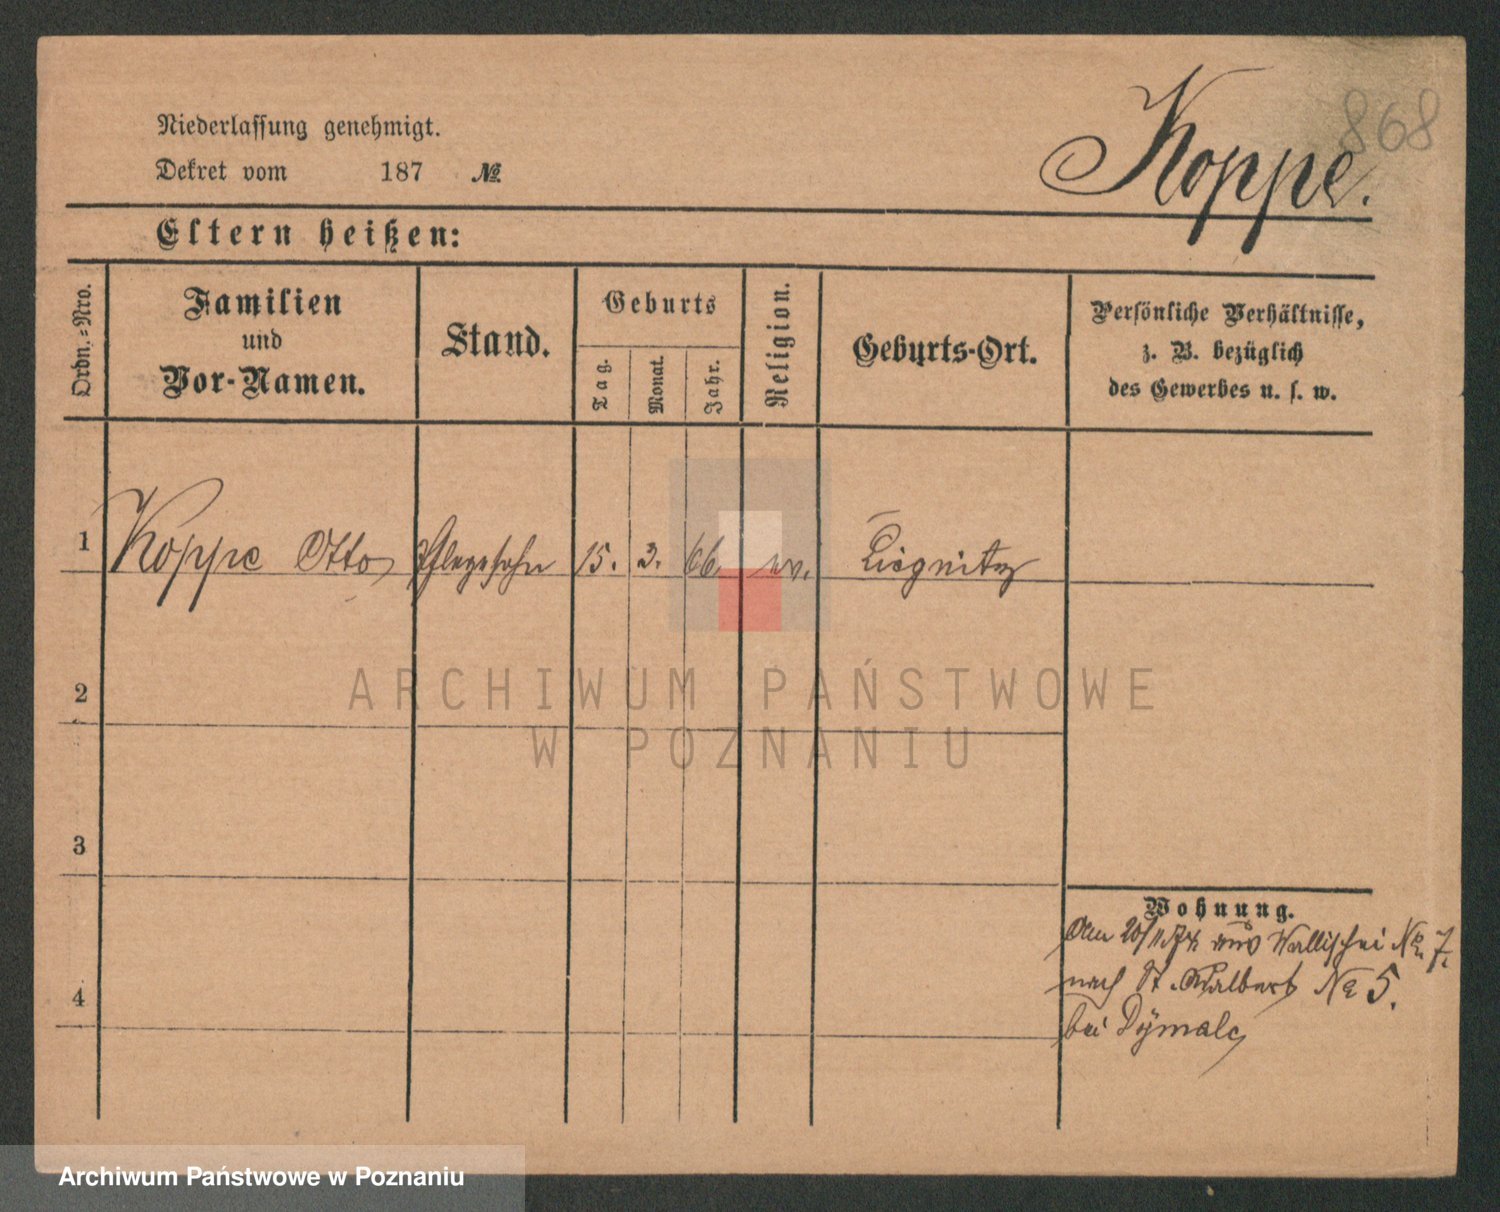 868
Koppe.
Niederlassung genehmigt.
Dekret vom 187 №
Eltern heißen:
Ordn.-Nro.
Familien
und
Vor-Namen.
Stand.
Geburts
Tag.
Monat.
Jahr.
Religion.
Geburts-Ort.
Persönliche Verhältnisse,
z. B. bezüglich
des Gewerbes u. s. w.
1 Koppe Otto Pflegesohn 15. 3. 66. ev. Liegnitz
2
3
4
Wohnung.
Am 20/11.74 aus Wallischei № 7.
nach St. Adalbert № 5.
bei
ARCHIWUM PAŃSTWOWE
W POZNANIU
Archiwum Państwowe w Poznaniu